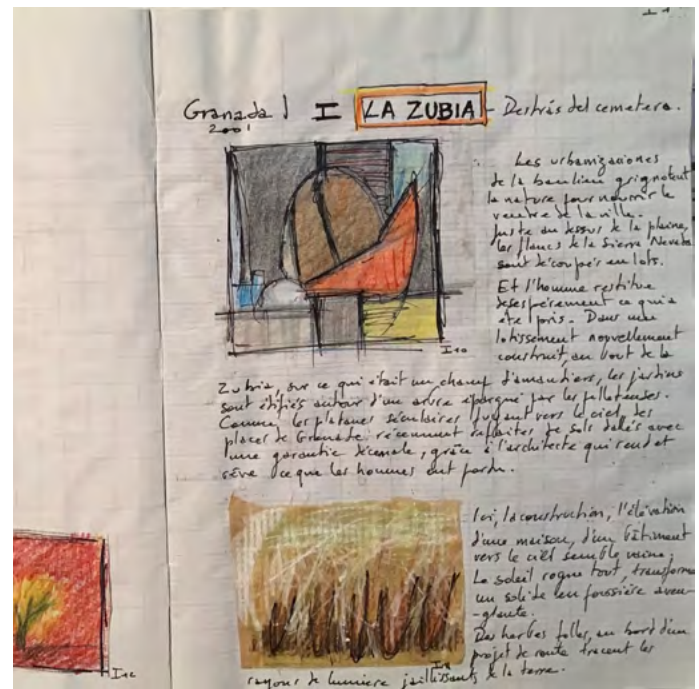 Granada I LA ZUBIA - Destrás del cemetero.
2001
Les urbanizaciones
de la banlieu grignotent
la nature pour nourrir le
ventre de la ville.
Juste au dessus de la plaine,
les flancs de la Sierra Nevada
sont découpés en lots.
Et l'homme restitue
désespérement ce qui a
été pris. Dans un
lotissement nouvellement
construit, au bout de la
I10
Zubia, sur ce qui était un champ d'amandiers, les jardins
sont édifiés autour d'un arbre épargné par les pelleteuses.
Comme les platanes séculaires fuyant vers le ciel, des
places de Grenade récemment refaites de sols dallés avec
une garantie décenale, grâce à l'architecte qui rend et
rêve ce que les hommes ont perdu.
Ici, la construction, l'élévation
d'une maison, d'un bâtiment
vers le ciel semble vaine.
Le soleil rogne tout, transforme
un solide en poussière aveu-
-glante.
Des herbes folles, au bord d'un
projet de route tracent les
rayons de lumière jaillissants de la terre.
I12